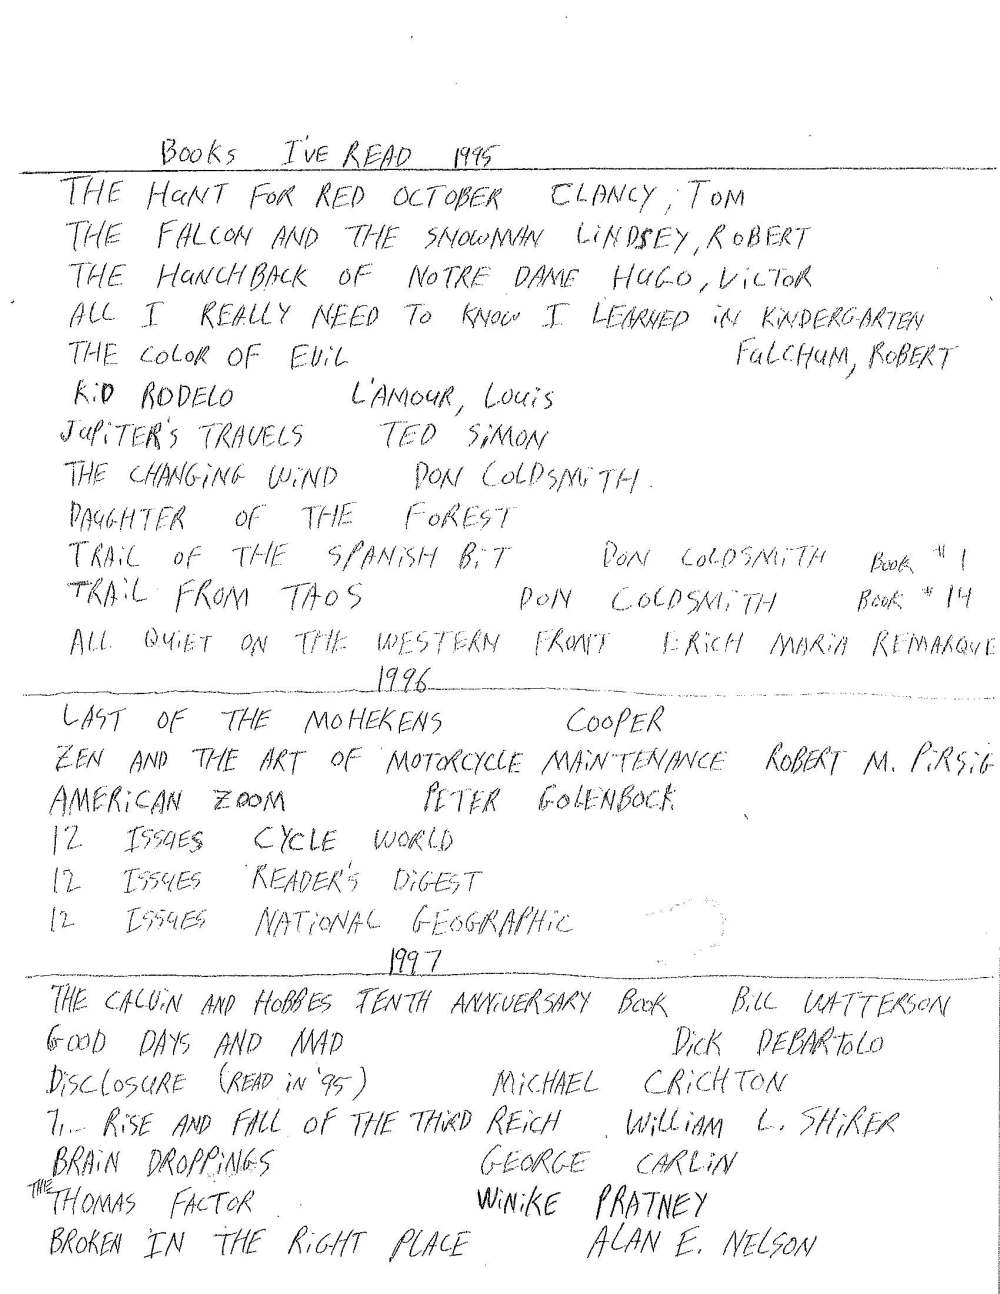 Books I'VE READ 1995
THE HUNT FOR RED OCTOBER CLANCY, TOM
THE FALCON AND THE SNOWMAN LINDSEY, ROBERT
THE HUNCHBACK OF NOTRE DAME HUGO, VICTOR
ALL I REALLY NEED TO KNOW I LEARNED IN KINDERGARTEN
THE COLOR OF EVIL FULCHUM, ROBERT
KID RODELO L'AMOUR, LOUIS
JUPITER'S TRAVELS TED SIMON
THE CHANGING WIND DON COLDSMITH.
DAUGHTER OF THE FOREST
TRAIL OF THE SPANISH BIT DON COLDSMITH BOOK #1
TRAIL FROM TAOS DON COLDSMITH BOOK #14
ALL QUIET ON THE WESTERN FRONT ERICH MARIA REMARQUE
1996
LAST OF THE MOHEKENS COOPER
ZEN AND THE ART OF MOTORCYCLE MAINTENANCE ROBERT M. PIRSIG
AMERICAN ZOOM PETER GOLENBOCK
12 ISSUES CYCLE WORLD
12 ISSUES READER'S DIGEST
12 ISSUES NATIONAL GEOGRAPHIC
1997
THE CALVIN AND HOBBES TENTH ANNIVERSARY BOOK BILL WATTERSON
GOOD DAYS AND MAD DICK DEBARTOLO
DISCLOSURE (READ IN '95) MICHAEL CRICHTON
RISE AND FALL OF THE THIRD REICH WILLIAM L. SHIRER
BRAIN DROPPINGS GEORGE CARLIN
THE THOMAS FACTOR WINIKE PRATNEY
BROKEN IN THE RIGHT PLACE ALAN E. NELSON